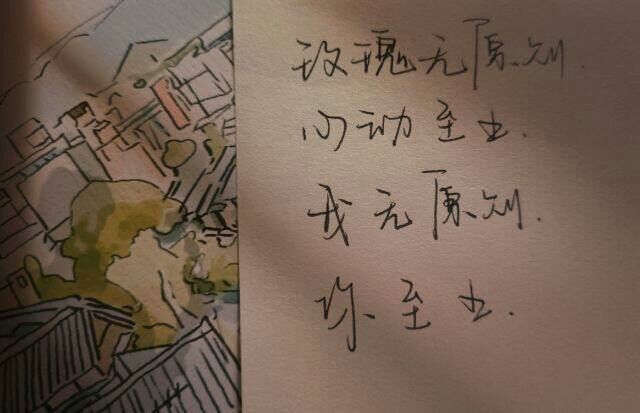 玫瑰无原则.
心动至上.
我无原则.
你至上.